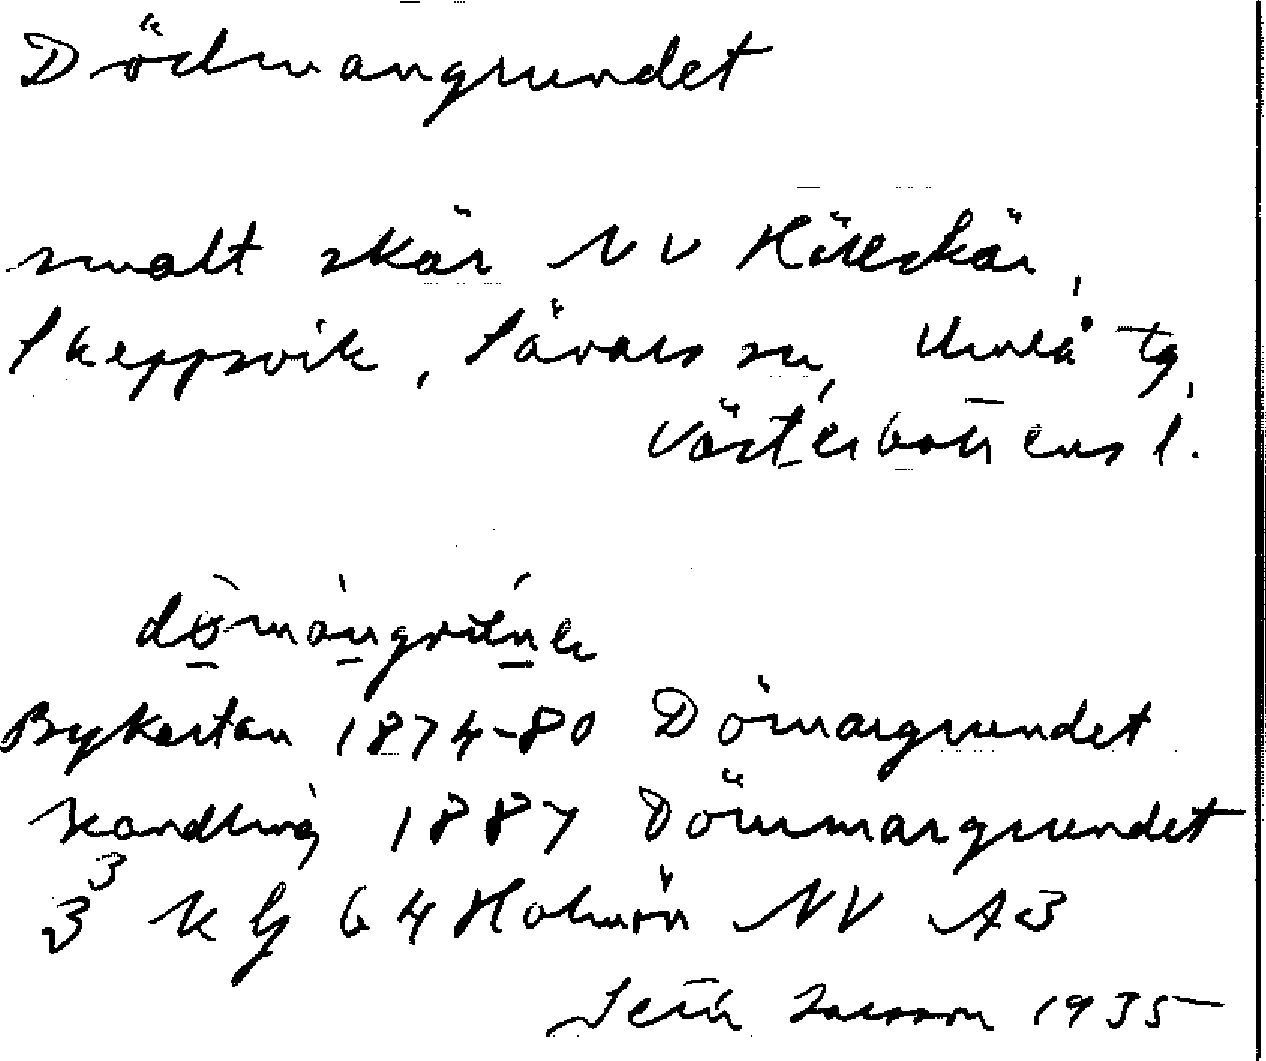 Dödmangrundet
smalt skär NV Häreskär,
Skeppsvik, Sävars sn, Umeå tg,
Västerbottens l.
Bykartan 1874-80 Dömargrundet
handling 1887 Dömmargrundet
3 3 k bl 64 Holmön NV A3
Seth Larsson 1935